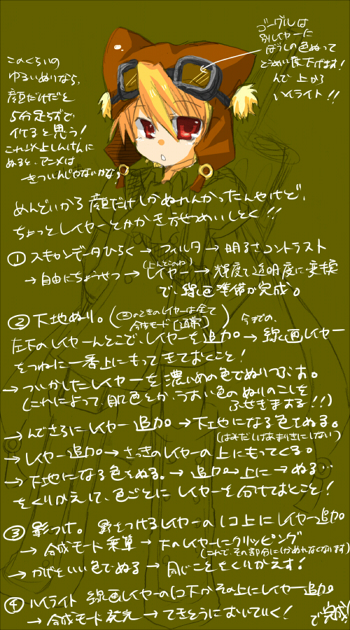 ゴーグルは
別レイヤーに
ぼうしの色ぬって
とうめい度下げます!
んで上から
ハイライト!!
このくらいの
ゆるいぬりなら、
顔だけだと
5分足らずで
作ると思う!
これ以上しんけんに
ぬると、アニメは
きついんじゃないかな
めんどいから顔だけしかぬれんかったんやけど、
ちょっとレイヤーとかかき方せつめいしとく!!
① スキャンデータひらく→フィルタ→明るさコントラスト
→自由にちょうせつ→レイヤー→輝度で透明度に変換
で、線画準備の完成。
② 下地ぬり。(このときのレイヤーは全て
合成モード「通常」) 今までの、
左下のレイヤーんとこで、レイヤーを追加。→線画レイヤー
をつねに一番上にもってきておくこと!
→ついかしたレイヤーを濃いめの色でぬりつぶす。
(これによって、肌色とか、うすい色のぬりのこしを
ふせぎますゐ!!)
→んでさらにレイヤー追加→下地になる色でぬる。
(はみだしはあまりきにしない)
→レイヤー追加→さっきのレイヤーの上にもってくる。
→下地になる色でぬる。→追加→上に→ぬる…
をくりかえして、色ごとにレイヤーを分けておくこと!
③ 影つけ。影をつけるレイヤーの1コ上にレイヤー追加
→合成モード乗算→下のレイヤーにクリッピング
(これで、その部分にしかぬれなくなります)
→かげといい色でぬる→同じことをくりかえす!
④ ハイライト 線画レイヤーの1コ下かその上にレイヤー追加
→合成モード発光→てきとうにおいていく!
で完成!